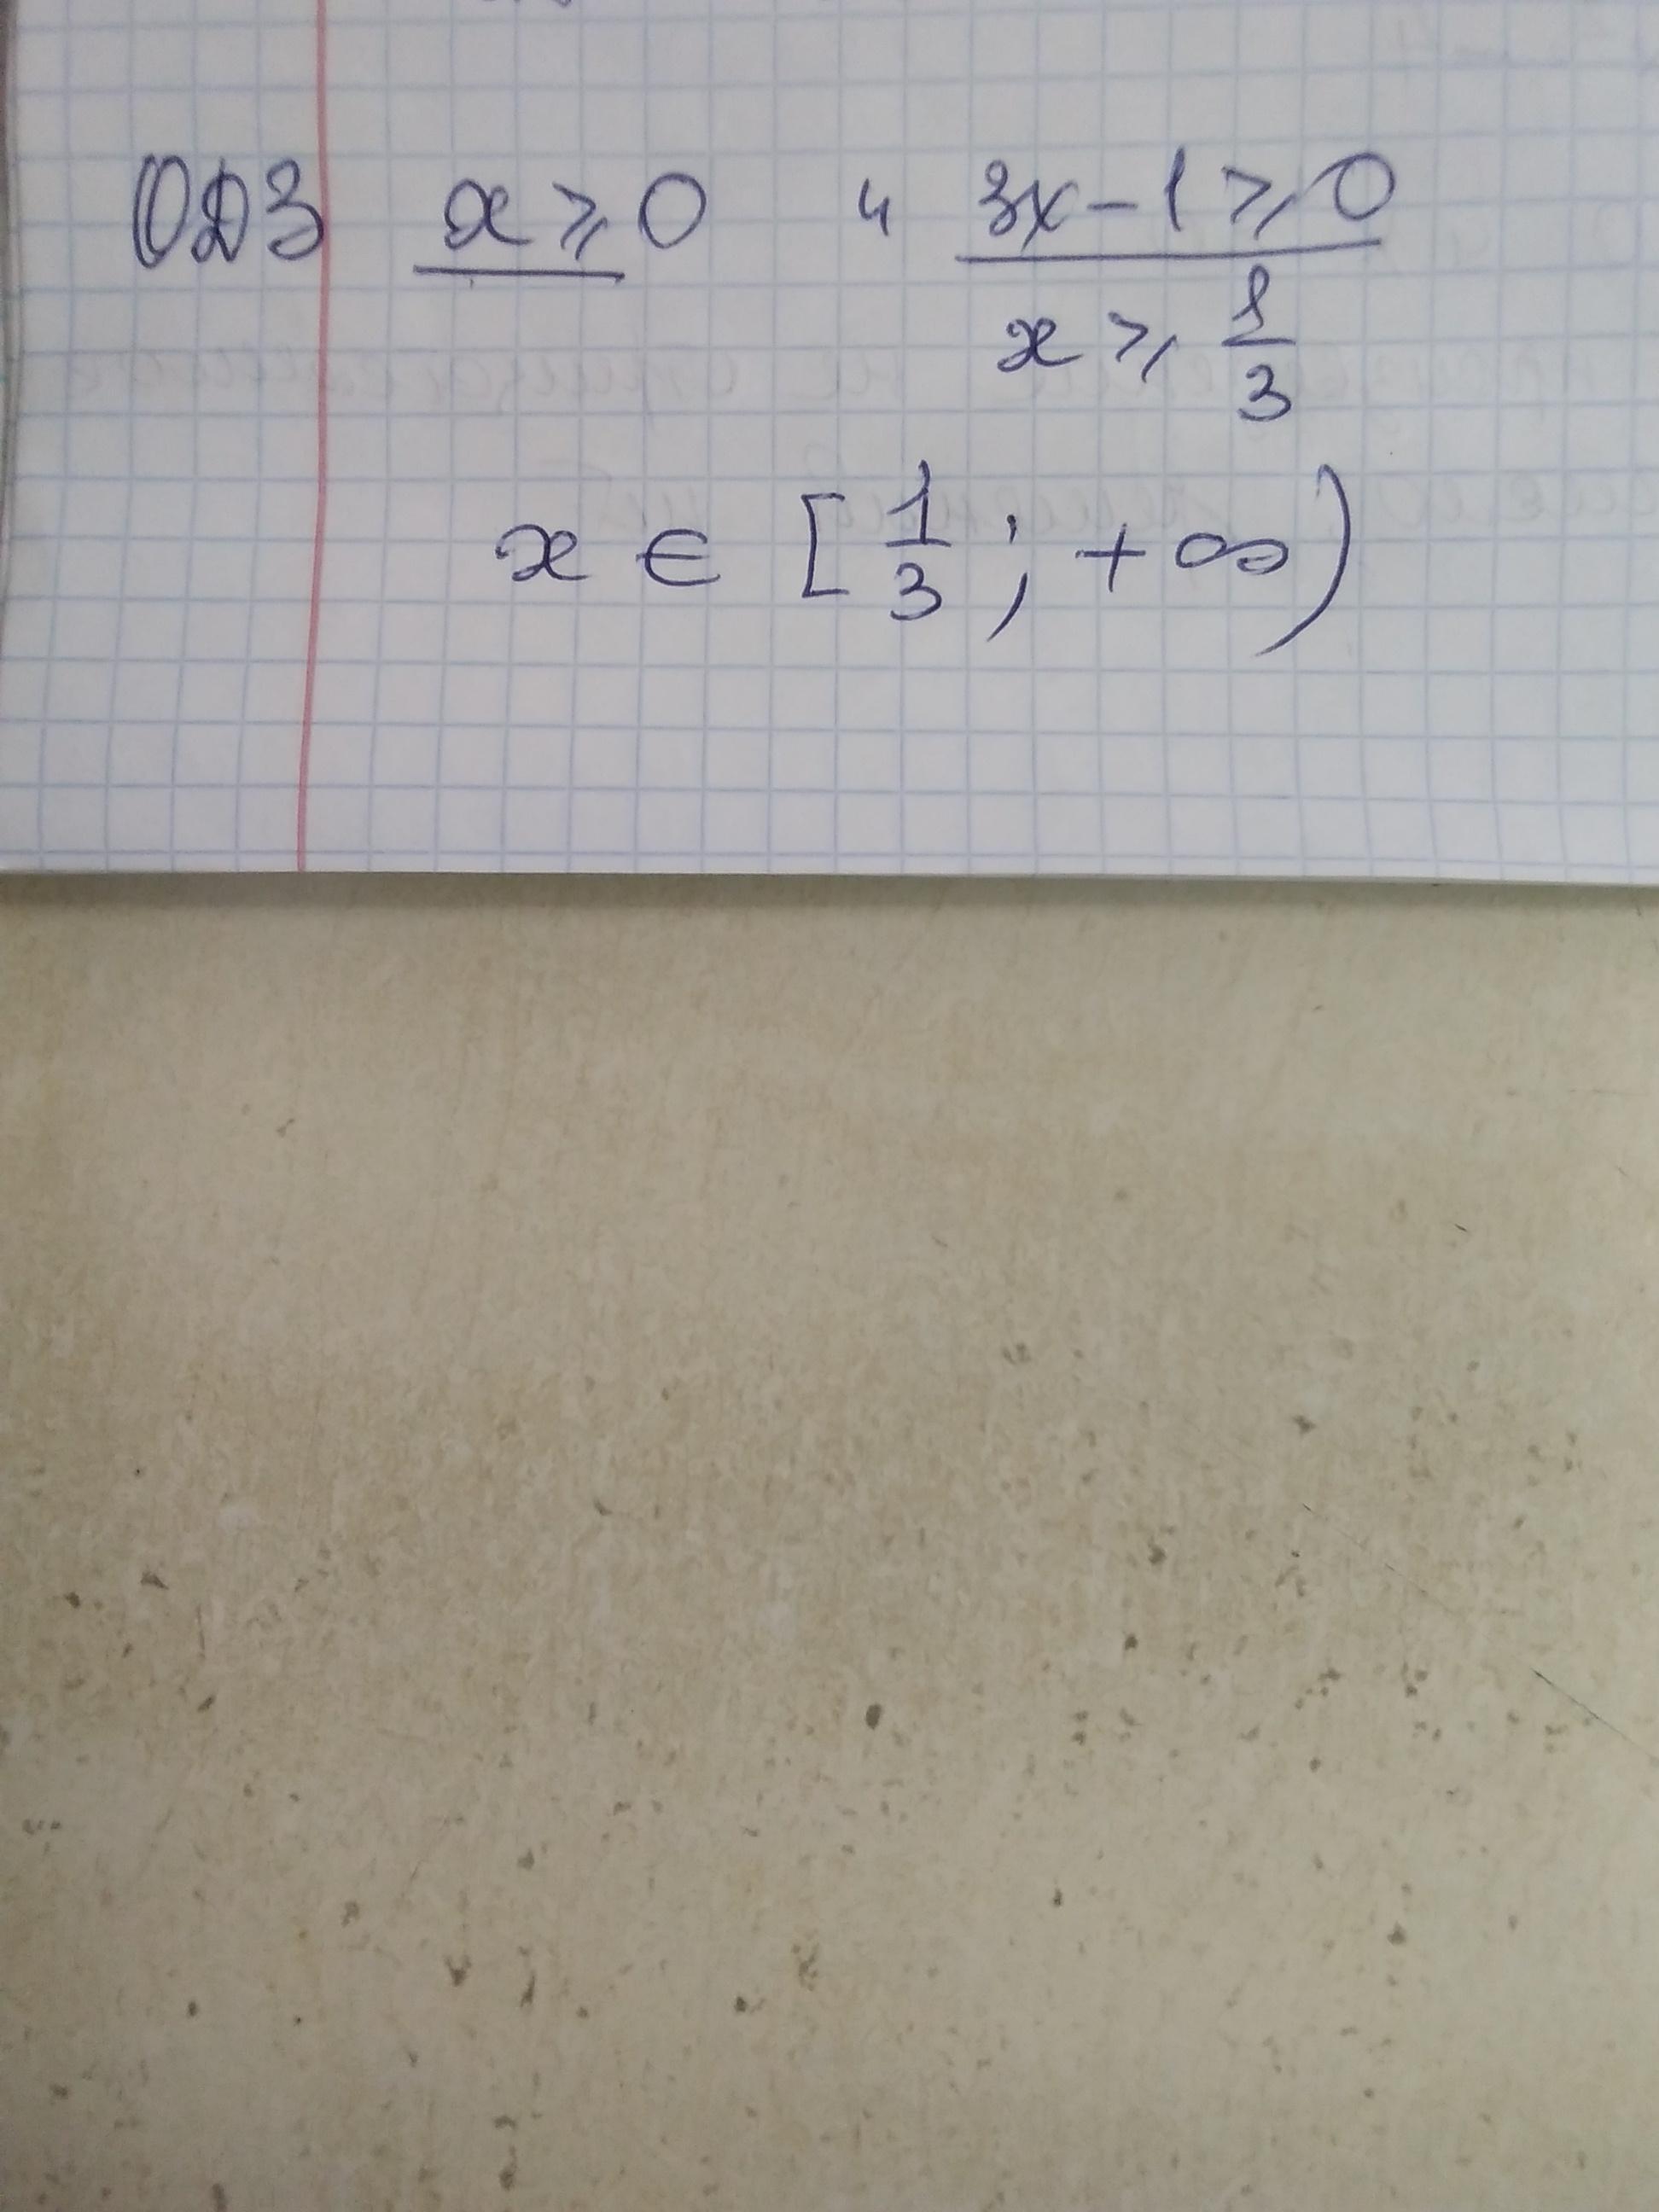 ОДЗ x ⩾ 0 и 3x - 1 ⩾ 0
x ⩾ 1/3
x ∈ [1/3; +∞)